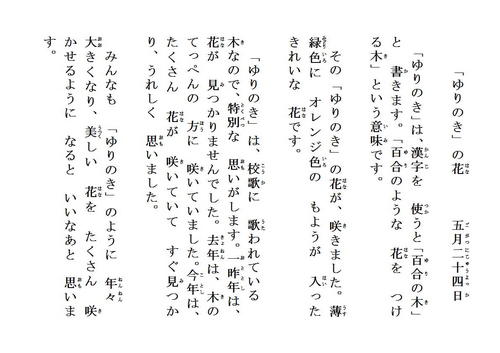 「ゆりのき」の花　五月二十四日
「ゆりのき」は、漢字を　使うと「百合の木」
と　書きます。「百合のような　花を　つけ
る木」という意味です。
その「ゆりのき」の花が、咲きました。薄
緑色に　オレンジ色の　もようが　入った
きれいな　花です。
「ゆりのき」は、校歌に　歌われている
木なので、特別な　思いがします。一昨年は、
花が　見つかりませんでした。去年は、木の
てっぺんの　方に　咲いていました。今年は、
たくさん　花が　咲いていて　すぐ見つか
り、うれしく　思いました。
みんなも　「ゆりのき」のように　年々
大きくなり、美しい　花を　たくさん　咲
かせるように　なると　いいなあと　思いま
す。